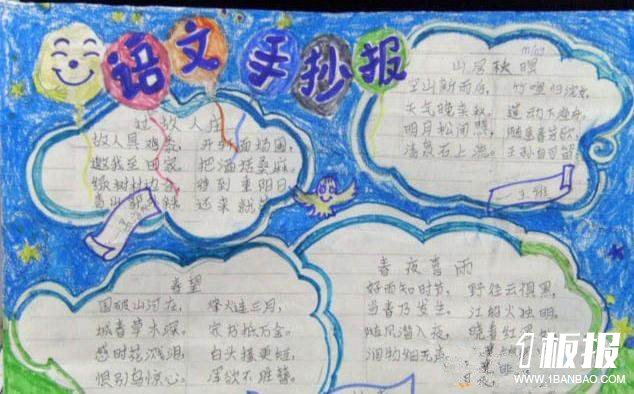 语文手抄报
过故人庄
故人具鸡黍, 开轩面场圃,
邀我至田家 把酒话桑麻
绿树村边合 待到重阳日,
还来就
山居秋暝
空山新雨后, 竹喧归浣女,
天气晚来秋, 莲动下渔舟,
明月松间照, 随意春芳歇,
清泉石上流。 王孙自可留
—王维
春望
国破山河在, 烽火连三月,
城春草木深。 家书抵万金。
感时花溅泪, 白头搔更短,
恨别鸟惊心。 浑欲不胜簪。
春夜喜雨
好雨知时节, 野径云俱黑,
当春乃发生, 江船火独明,
随风潜入夜, 晓看红
润物细无声
1板报
WWW.1BANBAO.COM